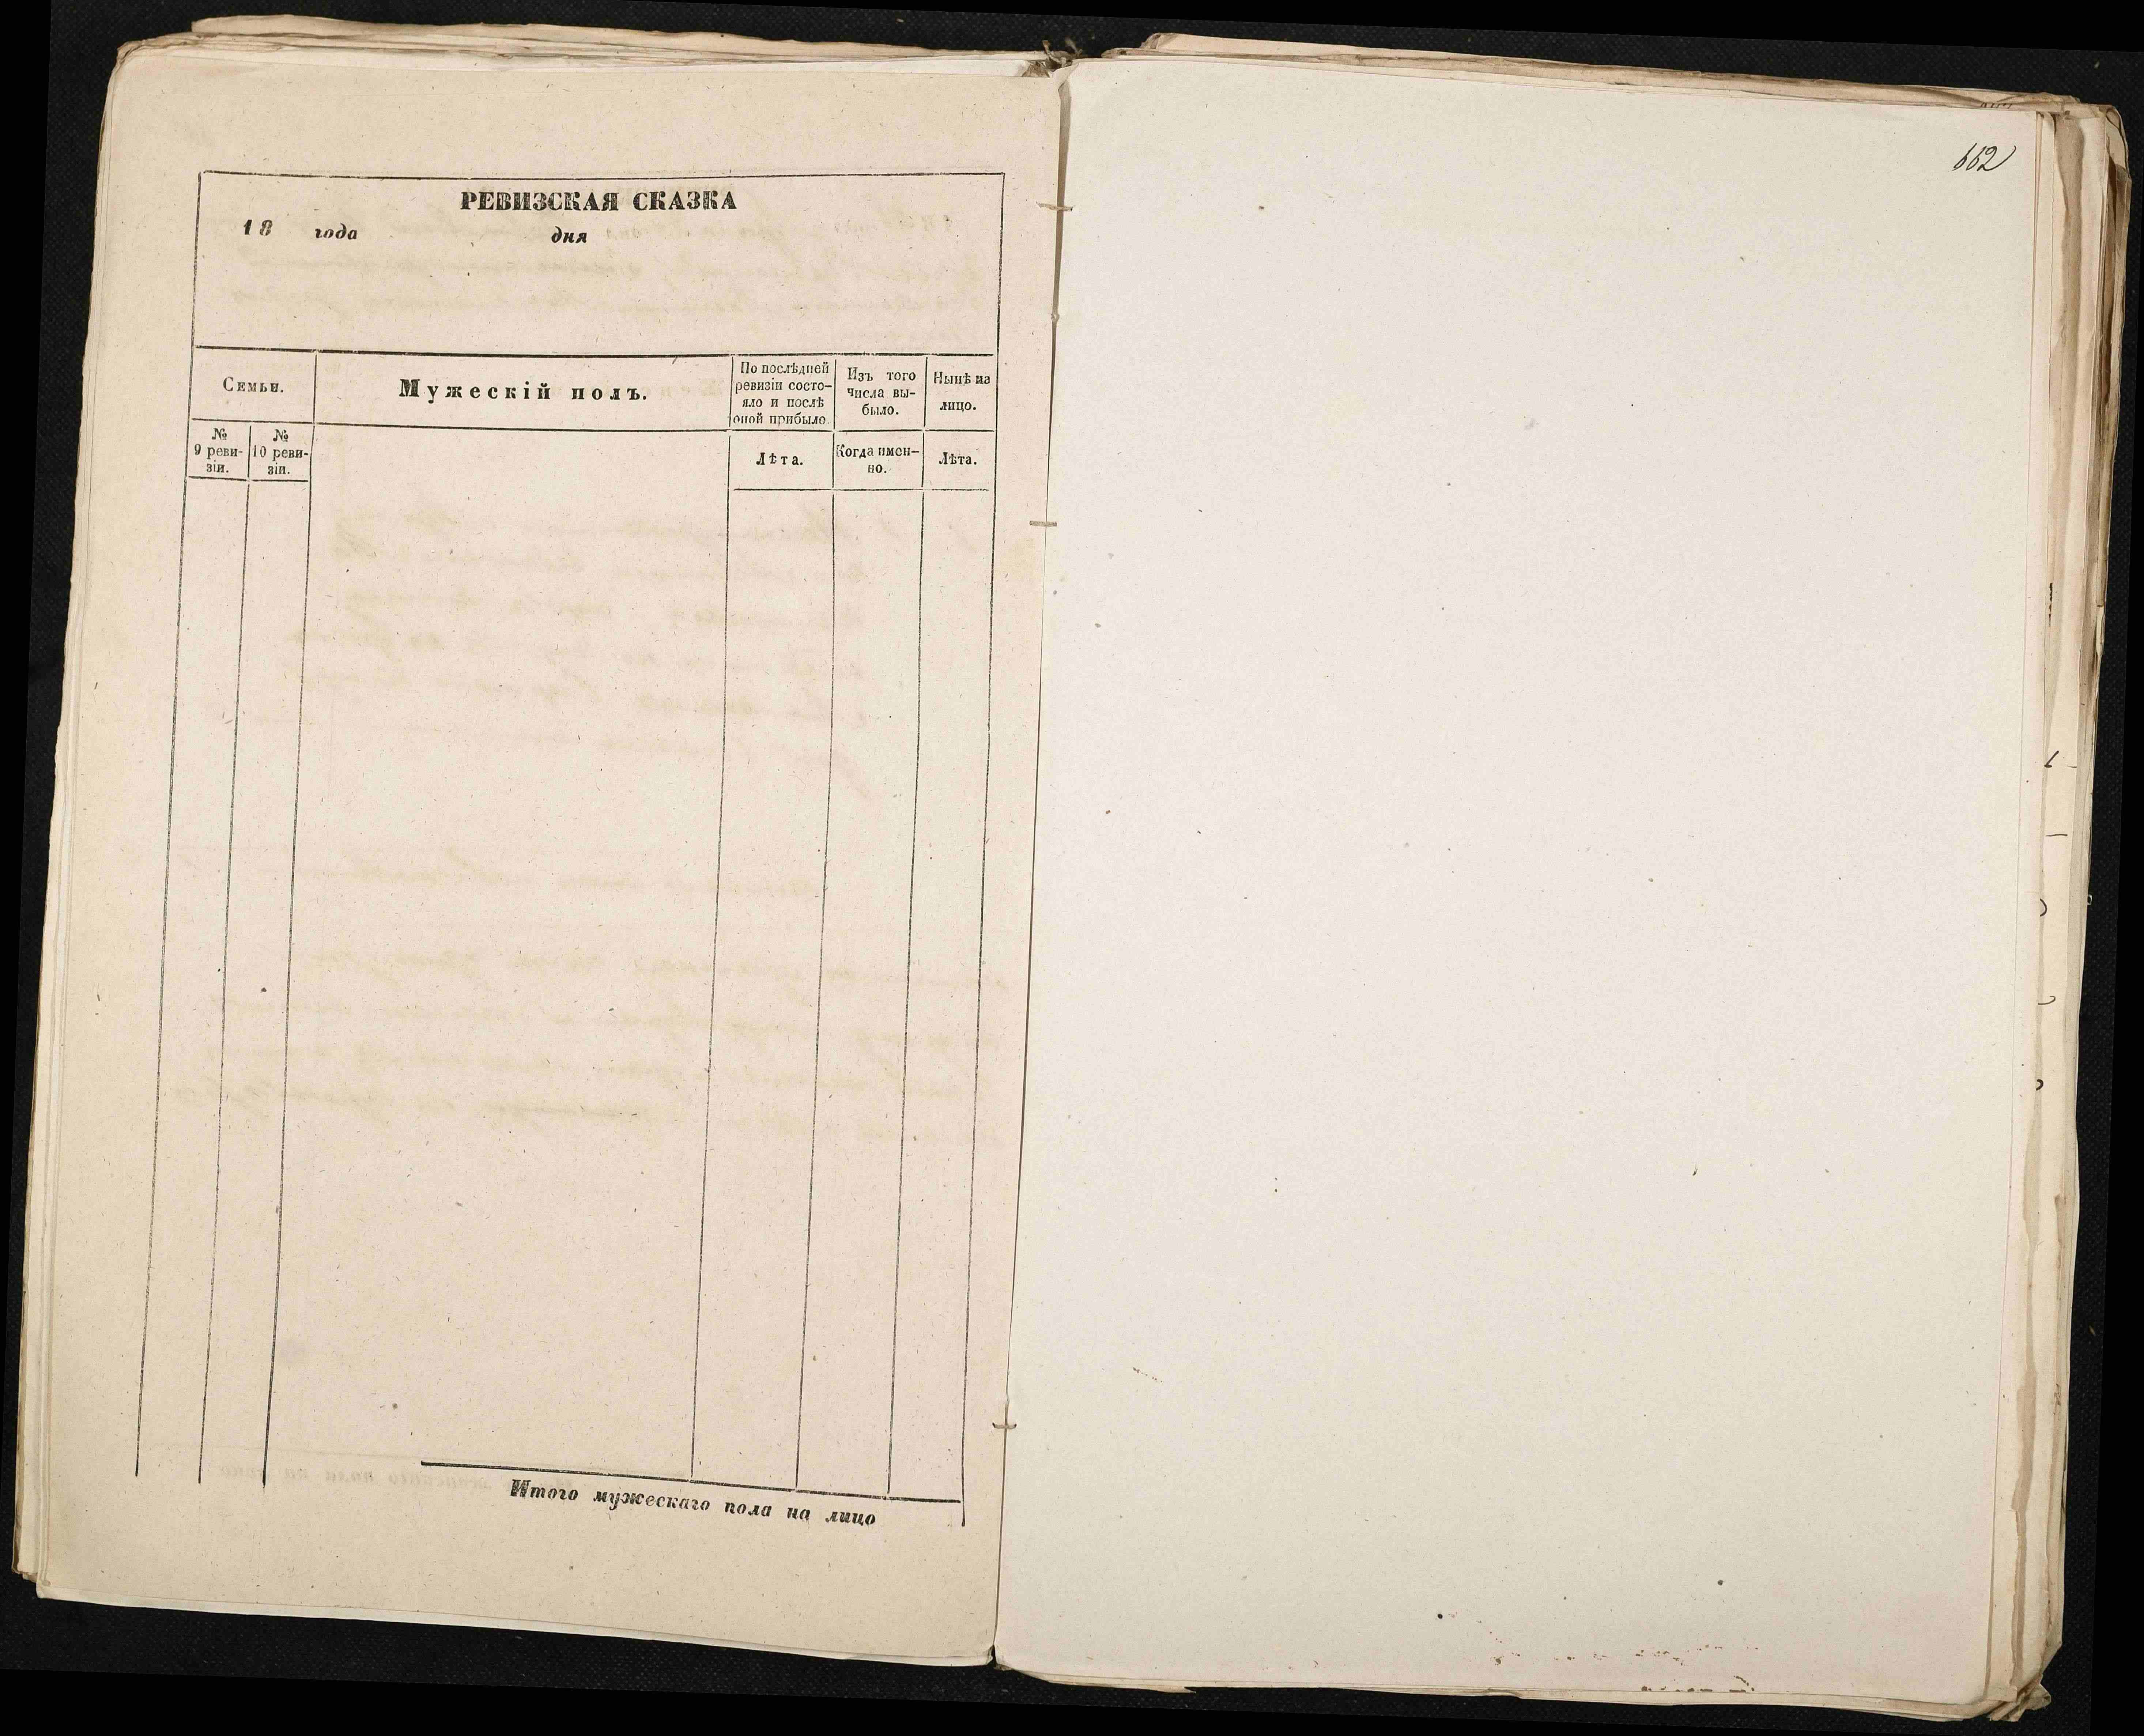 РЕВИЗСКАЯ СКАЗКА
18 года дня
Семьи.
Мужескій полъ.
По послѣдней
ревизіи состо-
яло и послѣ
оной прибыло.
Изъ того
числа вы-
было.
Нынѣ на
лицо.
№
9 реви-
зіи.
№
10 реви-
зіи.
Лѣта.
Когда имен-
но.
Лѣта.
Итого мужескаго пола на лицо
662